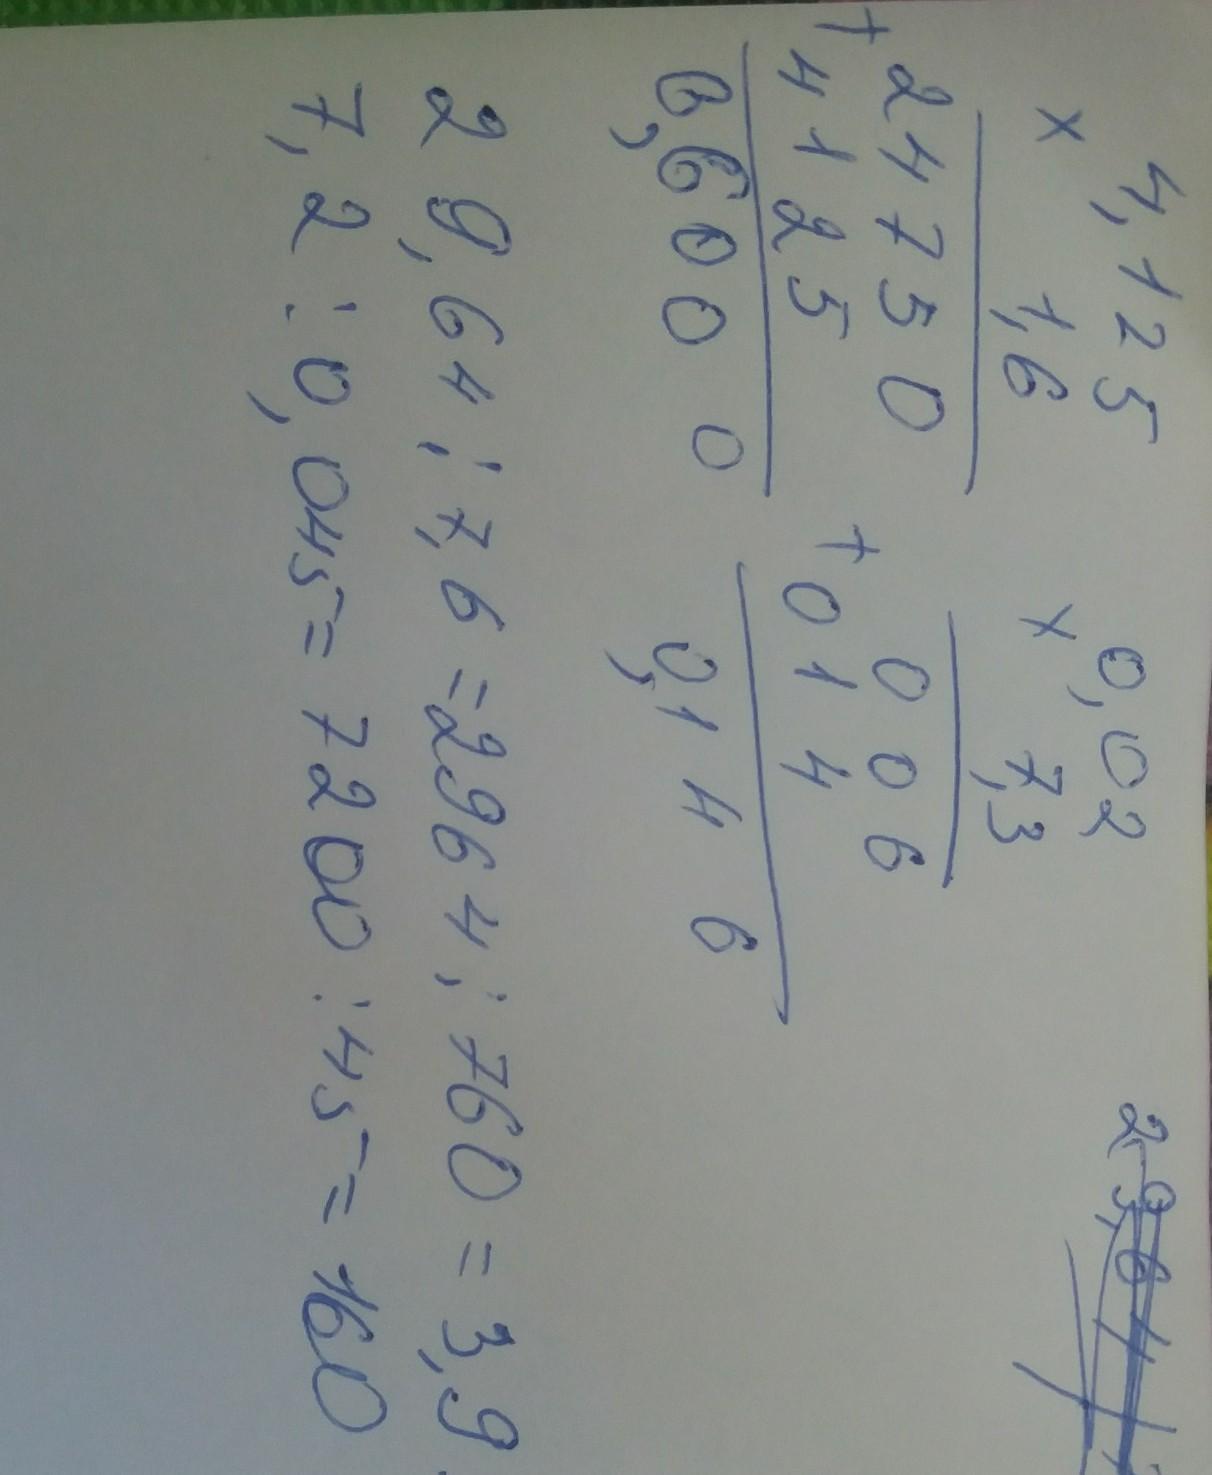 4,125
× 1,6
24750
+ 4125
6,6000
0,02
× 7,3
006
+ 014
0,146
29,64 : 7,6 = 2964 : 760 = 3,9.
7,2 : 0,045 = 7200 : 45 = 160